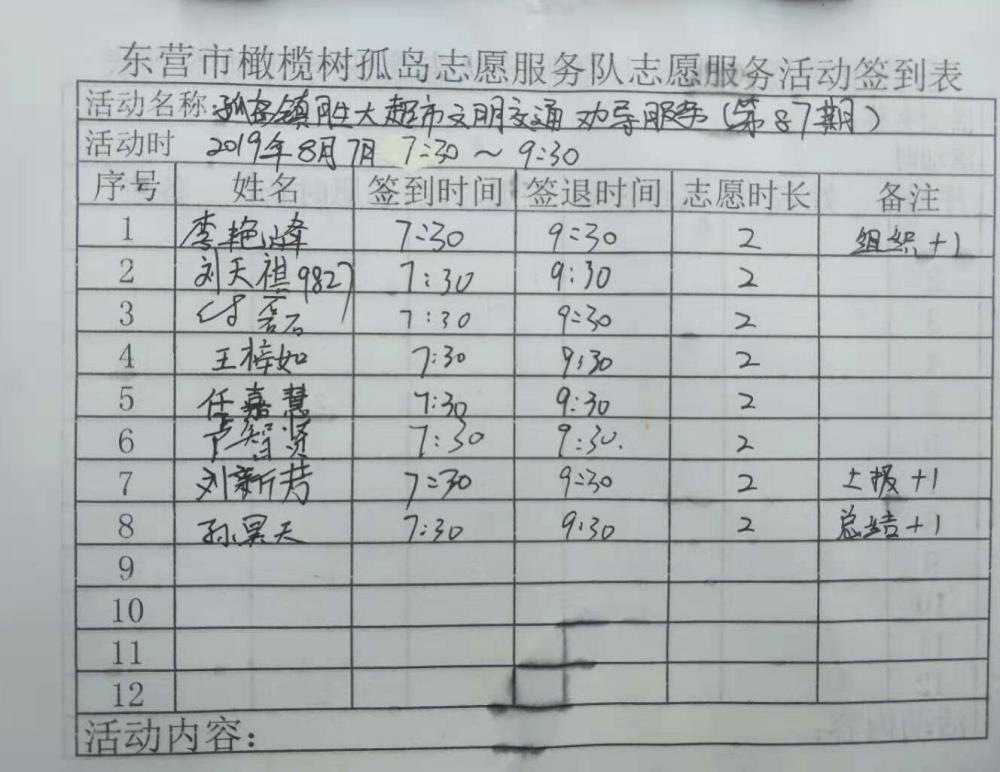 东营市橄榄树孤岛志愿服务队志愿服务活动签到表
活动名称 孤岛镇胜大超市文明交通劝导服务(第87期)
活动时 2019年8月7日 7:30~9:30
序号 姓名 签到时间 签退时间 志愿时长 备注
1 李艳峰 7:30 9:30 2 组织+1
2 刘天祺9827 7:30 9:30 2
3 付 7:30 9:30 2
4 王梓如 7:30 9:30 2
5 任嘉慧 7:30 9:30 2
6 芦智贤 7:30 9:30. 2
7 刘新芳 7:30 9:30 2 上报+1
8 孙昊天 7:30 9:30 2 总结+1
9
10
11
12
活动内容：